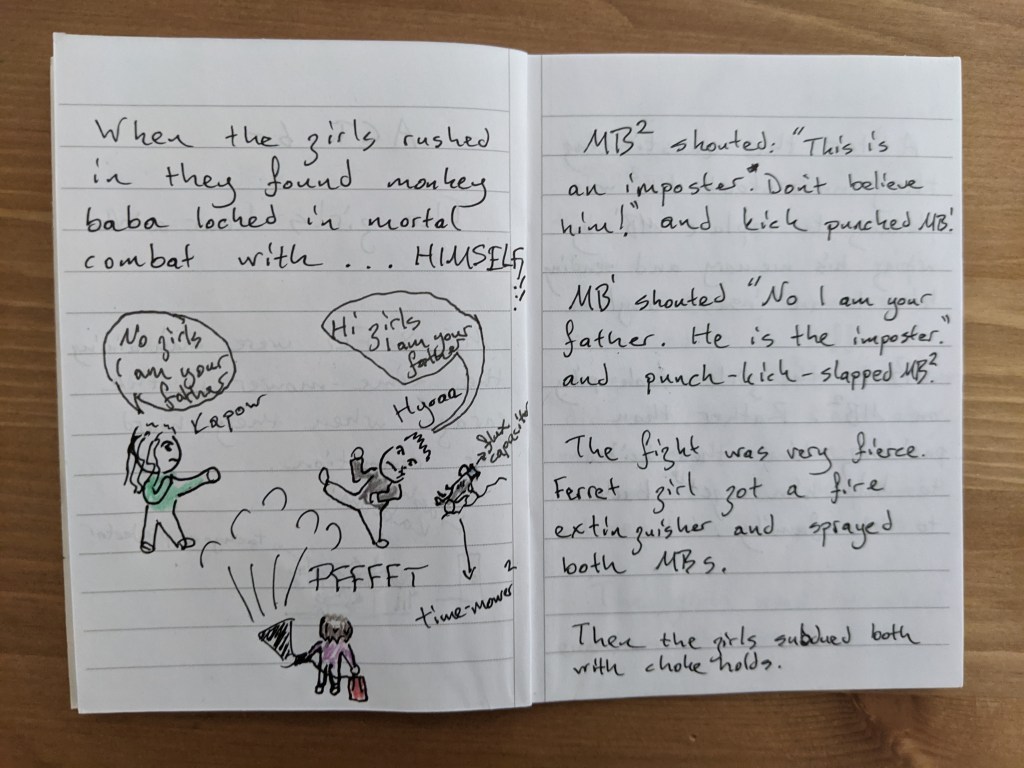 When the girls rushed
in they found monkey
baba locked in mortal
combat with ... HIMSELF!!!
No girls
I am your
father
Hi girls
I am your
father
Kapow
Hyaaa
flux
capacitor
PFFFFT
time-mower²
MB² shouted: "This is
an imposter. Don't believe
him!" and kick punched MB¹.
MB¹ shouted "No I am your
father. He is the imposter."
and punch-kick-slapped MB².
The fight was very fierce.
Ferret girl got a fire
extinguisher and sprayed
both MBs.
Then the girls subdued both
with choke holds.